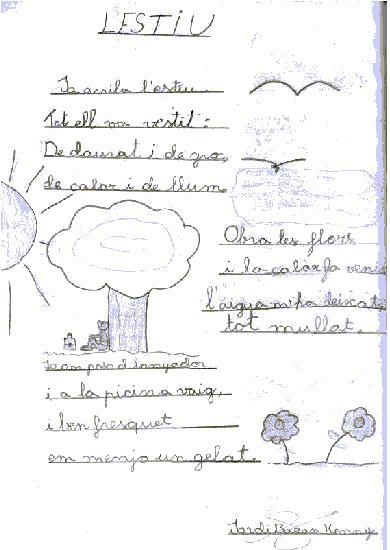 LESTIU
Ja arriba l'estiu
Tot ell va vestit:
De daurat i de groc,
de calor i de llum
Obra les flors
i la calor fa
l'aigua m'ha deixat
tot mullat.
Ja em poso el banyador
i a la picina vaig,
i ben fresquet
em menjo un gelat.
Jordi Kenny